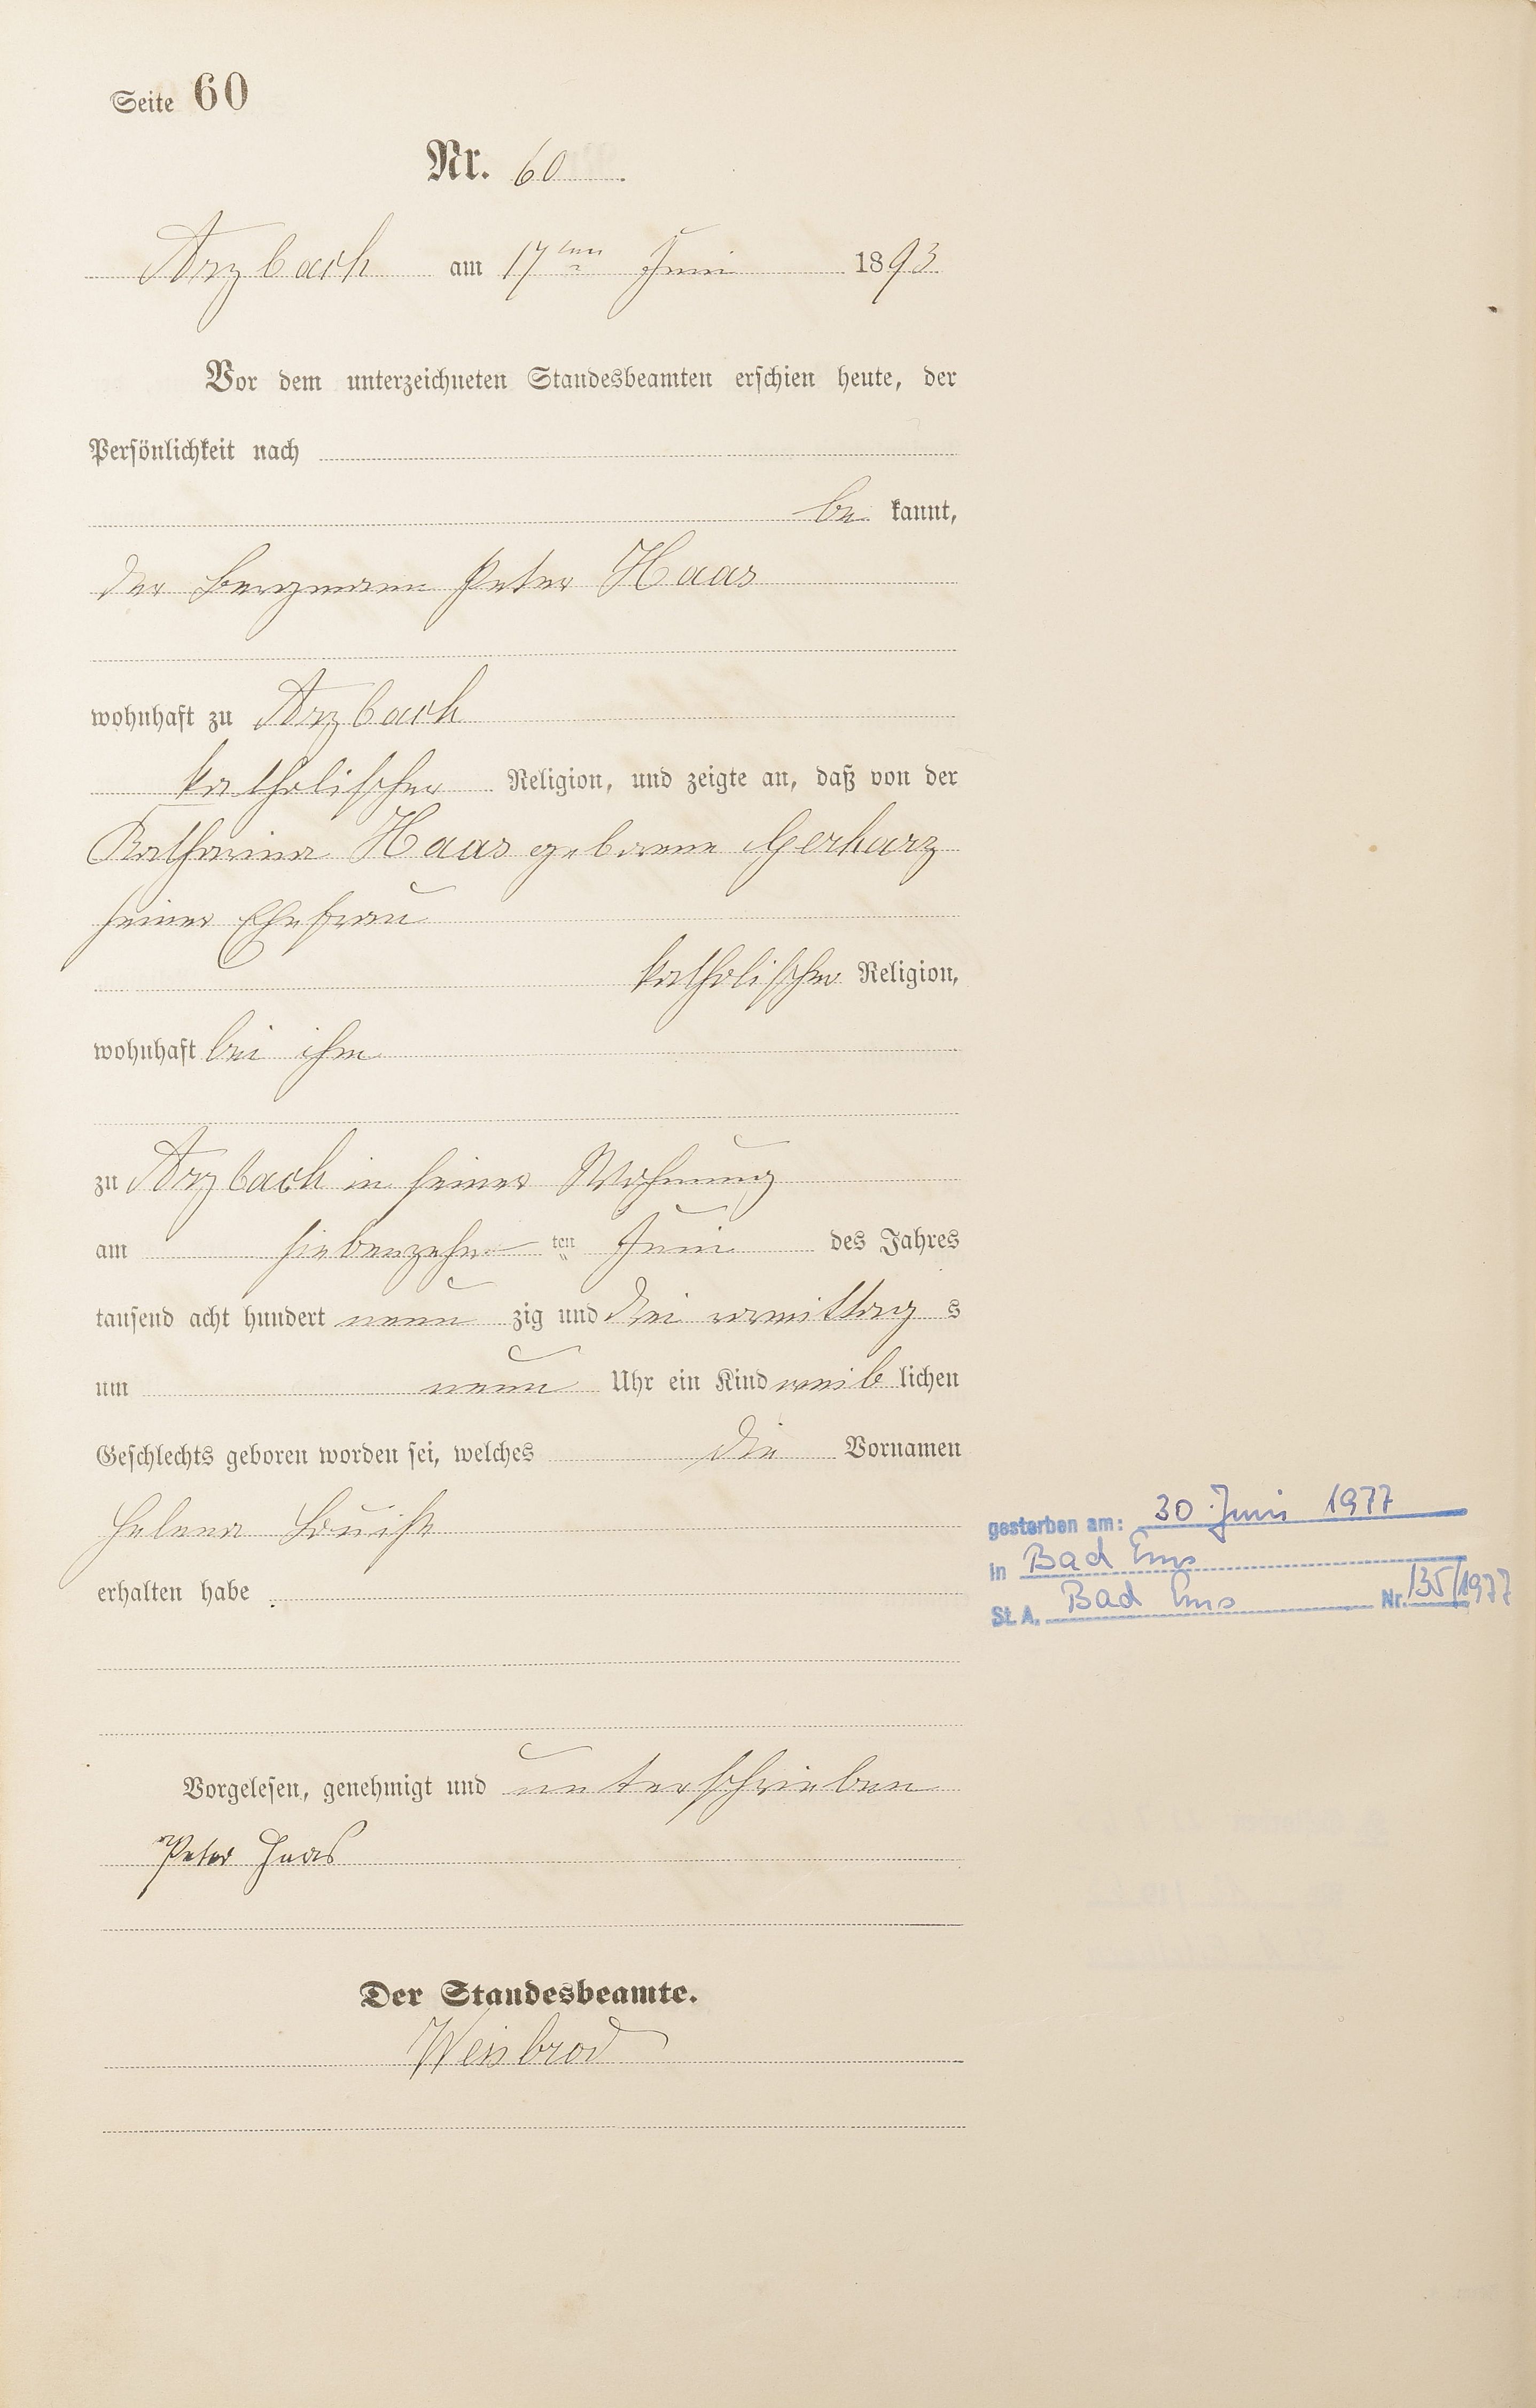 Seite 60
Nr. 60.
Arzbach am 17ten Juni 1893
Vor dem unterzeichneten Standesbeamten erschien heute, der
Persönlichkeit nach
be kannt,
der Bergmann Peter Haas
wohnhaft zu Arzbach
katholischer Religion, und zeigte an, daß von der
Katharina Haas geborene Gerharz
seiner Ehefrau
katholischer Religion,
wohnhaft bei ihm
zu Arzbach in seiner Wohnung
am siebenzehn ten Juni des Jahres
tausend acht hundert neun zig und drei vormittag s
um neun Uhr ein Kind weib lichen
Geschlechts geboren worden sei, welches die Vornamen
Helena Louise
erhalten habe
gestorben am: 30. Juni 1977
in Bad Ems
St. A. Bad Ems Nr. 135/1977
Vorgelesen, genehmigt und unterschrieben
Peter Haas
Der Standesbeamte.
Weisbrod